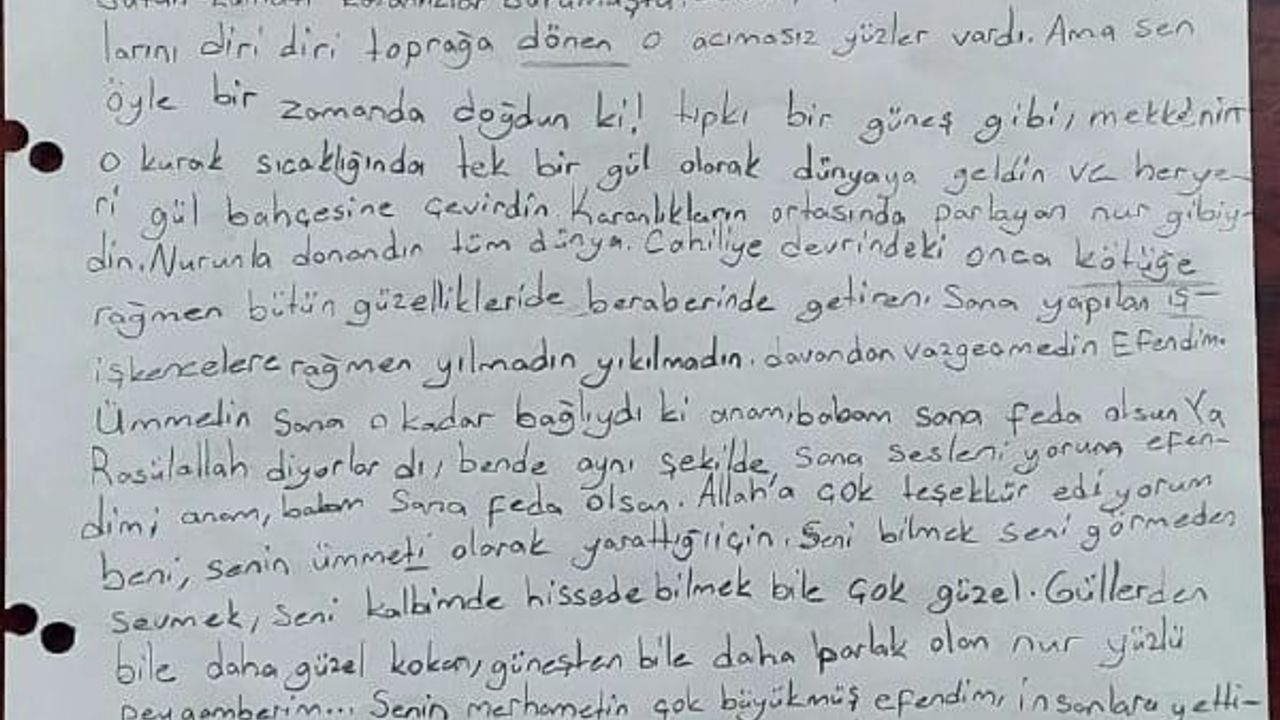 larını diri diri toprağa dönen o acımasız yüzler vardı. Ama sen
öyle bir zamanda doğdun ki! tıpkı bir güneş gibi, mekke'nin
o kurak sıcaklığında tek bir gül olarak dünyaya geldin ve herye-
ri gül bahçesine çevirdin. Karanlıkların ortasında parlayan nur gibiy-
din. Nurunla donandın tüm dünya. Cahiliye devrindeki onca kötüğe
rağmen bütün güzellikleride beraberinde getiren. Sana yapılan iş-
işkencelere rağmen yılmadın yıkılmadın. davandan vazgeçmedin Efendim.
Ümmetin Sana o kadar bağlıydı ki anam, babam sana feda olsun Ya
Rasülallah diyorlar dı, bende aynı şekilde, Sana sesleni yorum efen-
dim; anam, babam Sana feda olsan. Allah'a çok teşekkür edi yorum
beni, senin ümmeti olarak yarattığı için. Seni bilmek seni görmeden
sevmek, seni kalbimde hissede bilmek bile çok güzel. Güllerden
bile daha güzel kokan, güneşten bile daha parlak olan nur yüzlü
peygamberim... Senin merhametin çok büyükmüş efendim, insanlara yetti-